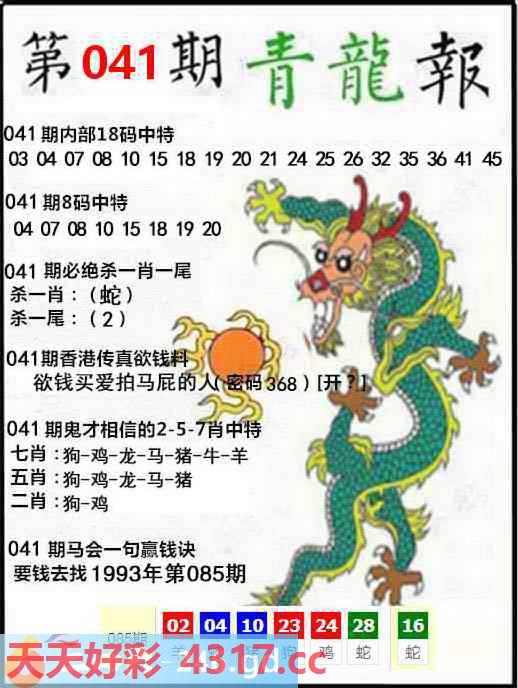 第041期 青龍報
041期内部18码中特
03 04 07 08 10 15 18 19 20 21 24 25 26 32 35 36 41 45
041期8码中特
04 07 08 10 15 18 19 20
041 期必绝杀一肖一尾
杀一肖：（蛇）
杀一尾：（2）
041期香港传真欲钱料
欲钱买爱拍马屁的人(密码368）[开?]
041期鬼才相信的2-5-7肖中特
七肖：狗-鸡-龙-马-猪-牛-羊
五肖：狗-鸡-龙-马-猪
二肖：狗-鸡
041期马会一句赢钱诀
要钱去找1993年第085期
085期 02 04 10 23 24 28 16
羊 猪 狗 鸡 蛇 蛇
天天好彩 4317.cc